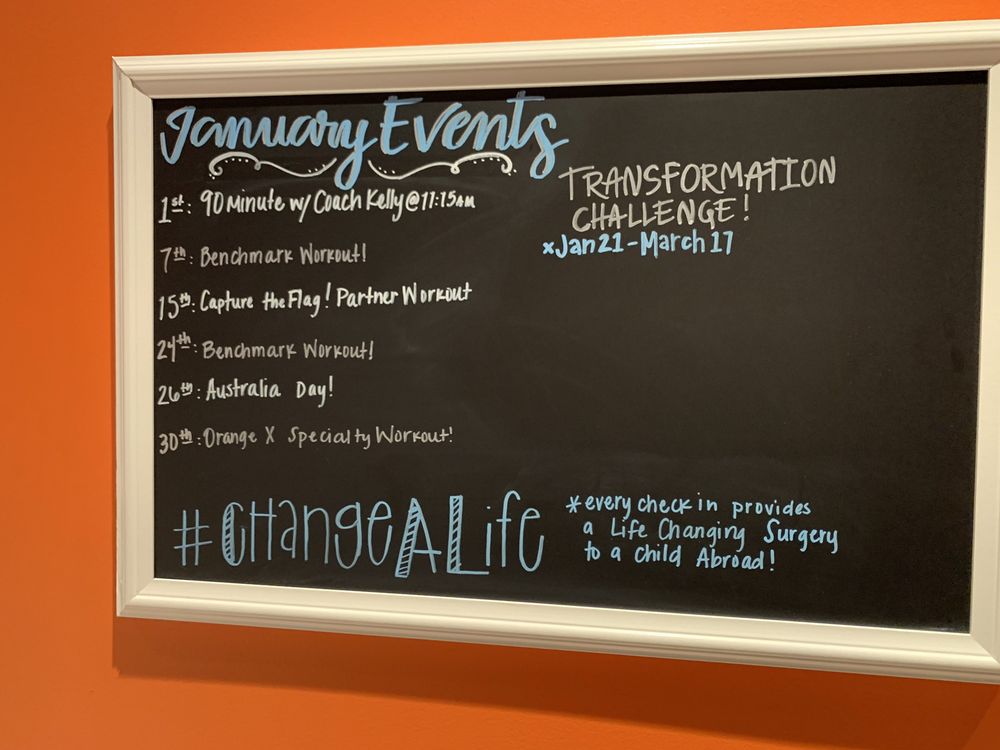 January Events
1st: 90 Minute w/ Coach Kelly @ 11:15AM
7th: Benchmark Workout!
15th: Capture the Flag! Partner Workout
24th: Benchmark Workout!
26th: Australia Day!
30th: Orange X Specialty Workout!
TRANSFORMATION
CHALLENGE!
xJan 21-March 17
#CHangeALife
*every check in provides
a Life Changing Surgery
to a Child Abroad!